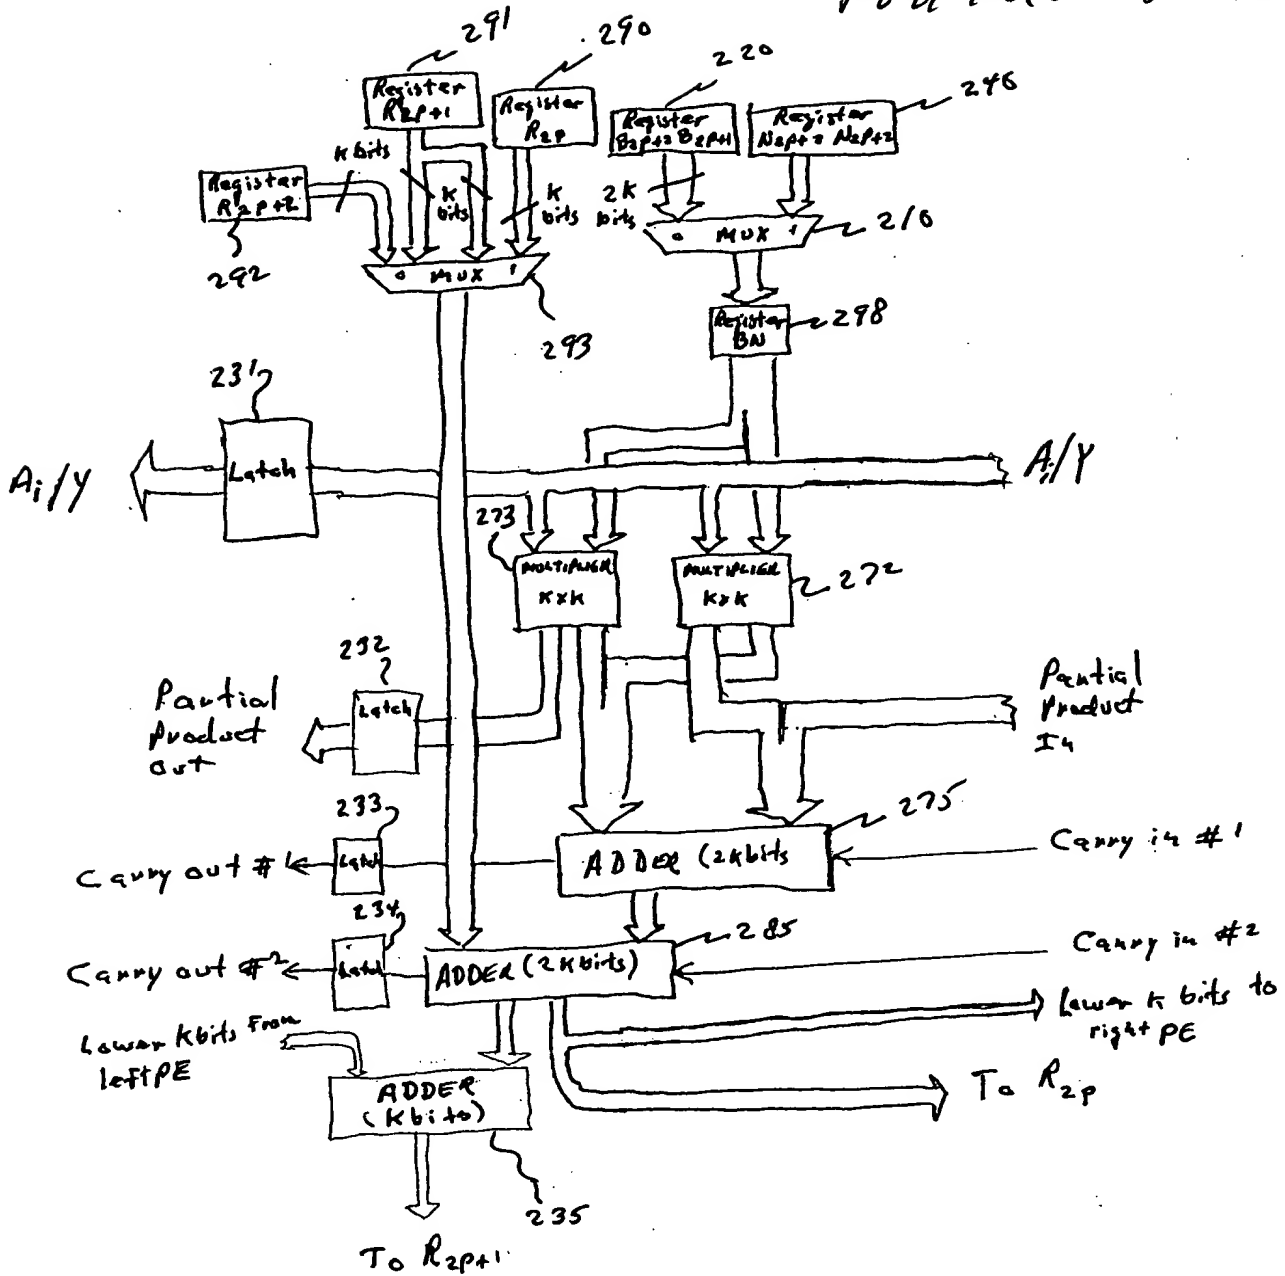 291
290
220
246
Register
R2p+1
Register
R2p
Register
B2p+2 B2p+1
Register
N2p+3 N2p+2
K bits
Register
R2p+2
K
bits
K
bits
2K
bits
292
0 MUX 1
293
0 MUX 1
210
Register
BN
298
231
Latch
Ai/Y
Ai/Y
273
MULTIPLIER
KxK
MULTIPLIER
KxK
272
232
Latch
Partial
Product
out
Partial
Product
In
233
275
Carry out #1
Latch
ADDER (2Kbits
Carry in #1
234
285
Carry out #2
Latch
ADDER (2Kbits)
Carry in #2
Lower Kbits From
left PE
Lower K bits to
right PE
ADDER
(Kbits)
To R2p
235
To R2p+1